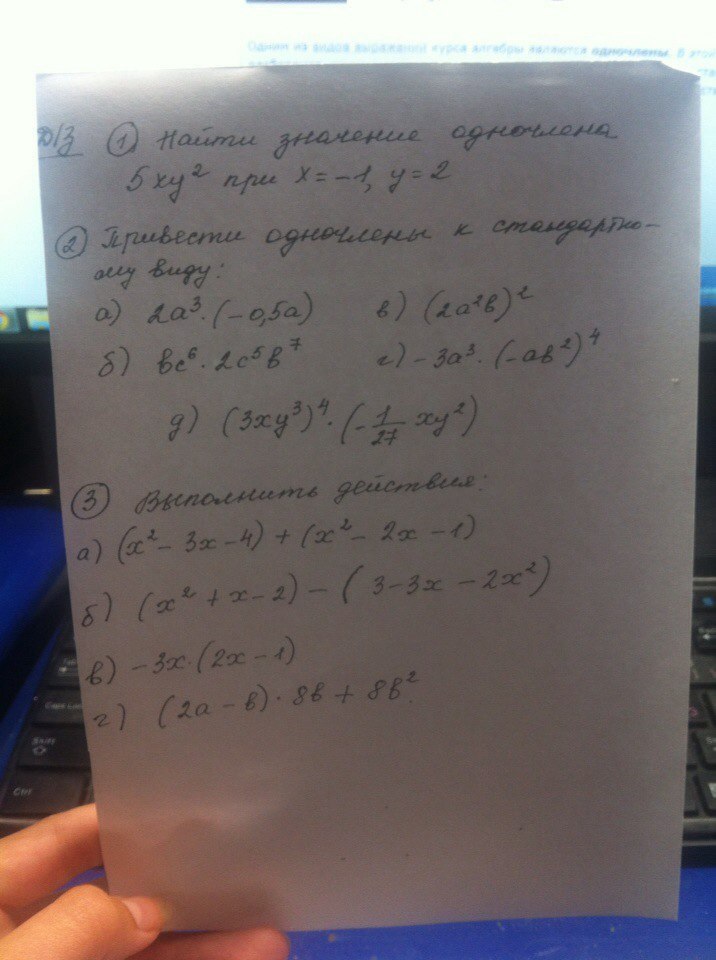 Одним из видов выражений курса алгебры являются одночлены. В этой
Д/З ① Найти значение одночлена
5xy² при x = -1, y = 2
② Привести одночлены к стандартно-
му виду:
а) 2a³ · (-0,5a) в) (2a²b)²
б) bc⁶ · 2c⁵b⁷ г) -3a³ · (-ab²)⁴
д) (3xy³)⁴ · (-1/27 xy²)
③ Выполнить действия:
а) (x² - 3x - 4) + (x² - 2x - 1)
б) (x² + x - 2) - (3 - 3x - 2x²)
в) -3x · (2x - 1)
г) (2a - b) · 8b + 8b².
Caps Lock
Shift
Ctrl